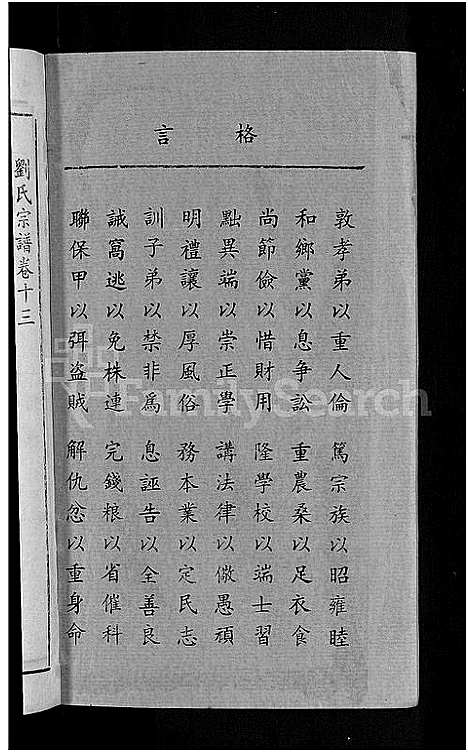 格言
敦孝弟以重人倫 篤宗族以昭雍睦
和鄉黨以息爭訟 重農桑以足衣食
尚節儉以惜財用 隆學校以端士習
黜異端以崇正學 講法律以儆愚頑
明禮讓以厚風俗 務本業以定民志
訓子弟以禁非為 息誣告以全善良
誡窩逃以免株連 完錢粮以省催科
聯保甲以弭盜賊 解仇忿以重身命
劉氏宗譜卷十三
FamilySearch